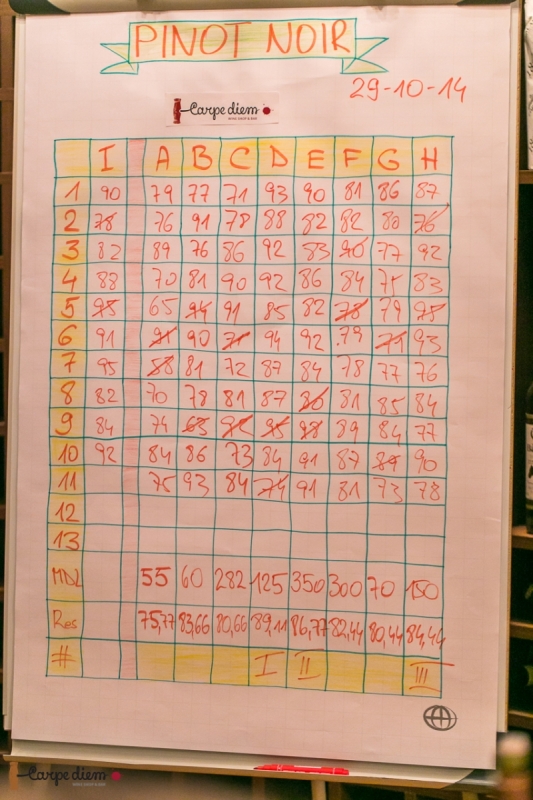 PINOT NOIR
29-10-14
Carpe diem
I A B C D E F G H
1 90 79 77 71 93 90 81 86 87
2 78 76 91 78 88 82 82 80 76
3 82 89 76 86 92 83 90 77 92
4 88 70 81 90 92 86 84 75 83
5 95 65 94 91 85 82 78 79 95
6 91 91 90 71 94 92 79 71 93
7 95 88 81 72 87 84 78 77 76
8 82 70 78 81 87 80 81 85 84
9 84 74 63 92 95 98 89 84 77
10 92 84 86 73 84 91 87 89 90
11 75 93 84 74 91 81 73 78
12
13
MDL 55 60 282 125 350 300 70 150
Res 75,77 83,66 80,66 89,11 86,77 82,44 80,44 84,44
# I II III
Carpe diem